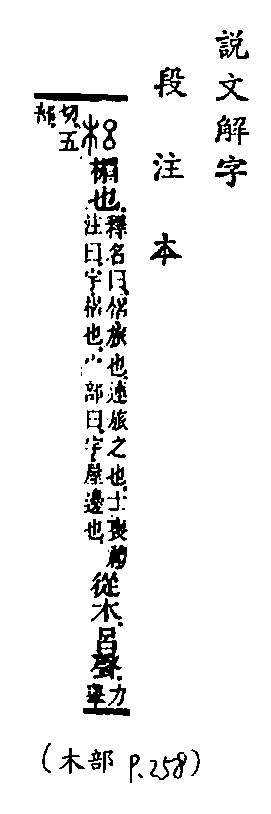 説文解字
段注本
梠
楣也釋名曰梠旅也連旅之也士喪禮
注曰宇梠也宀部曰宇屋邊也從木呂聲力
舉
切五
部
(木部 P.258)